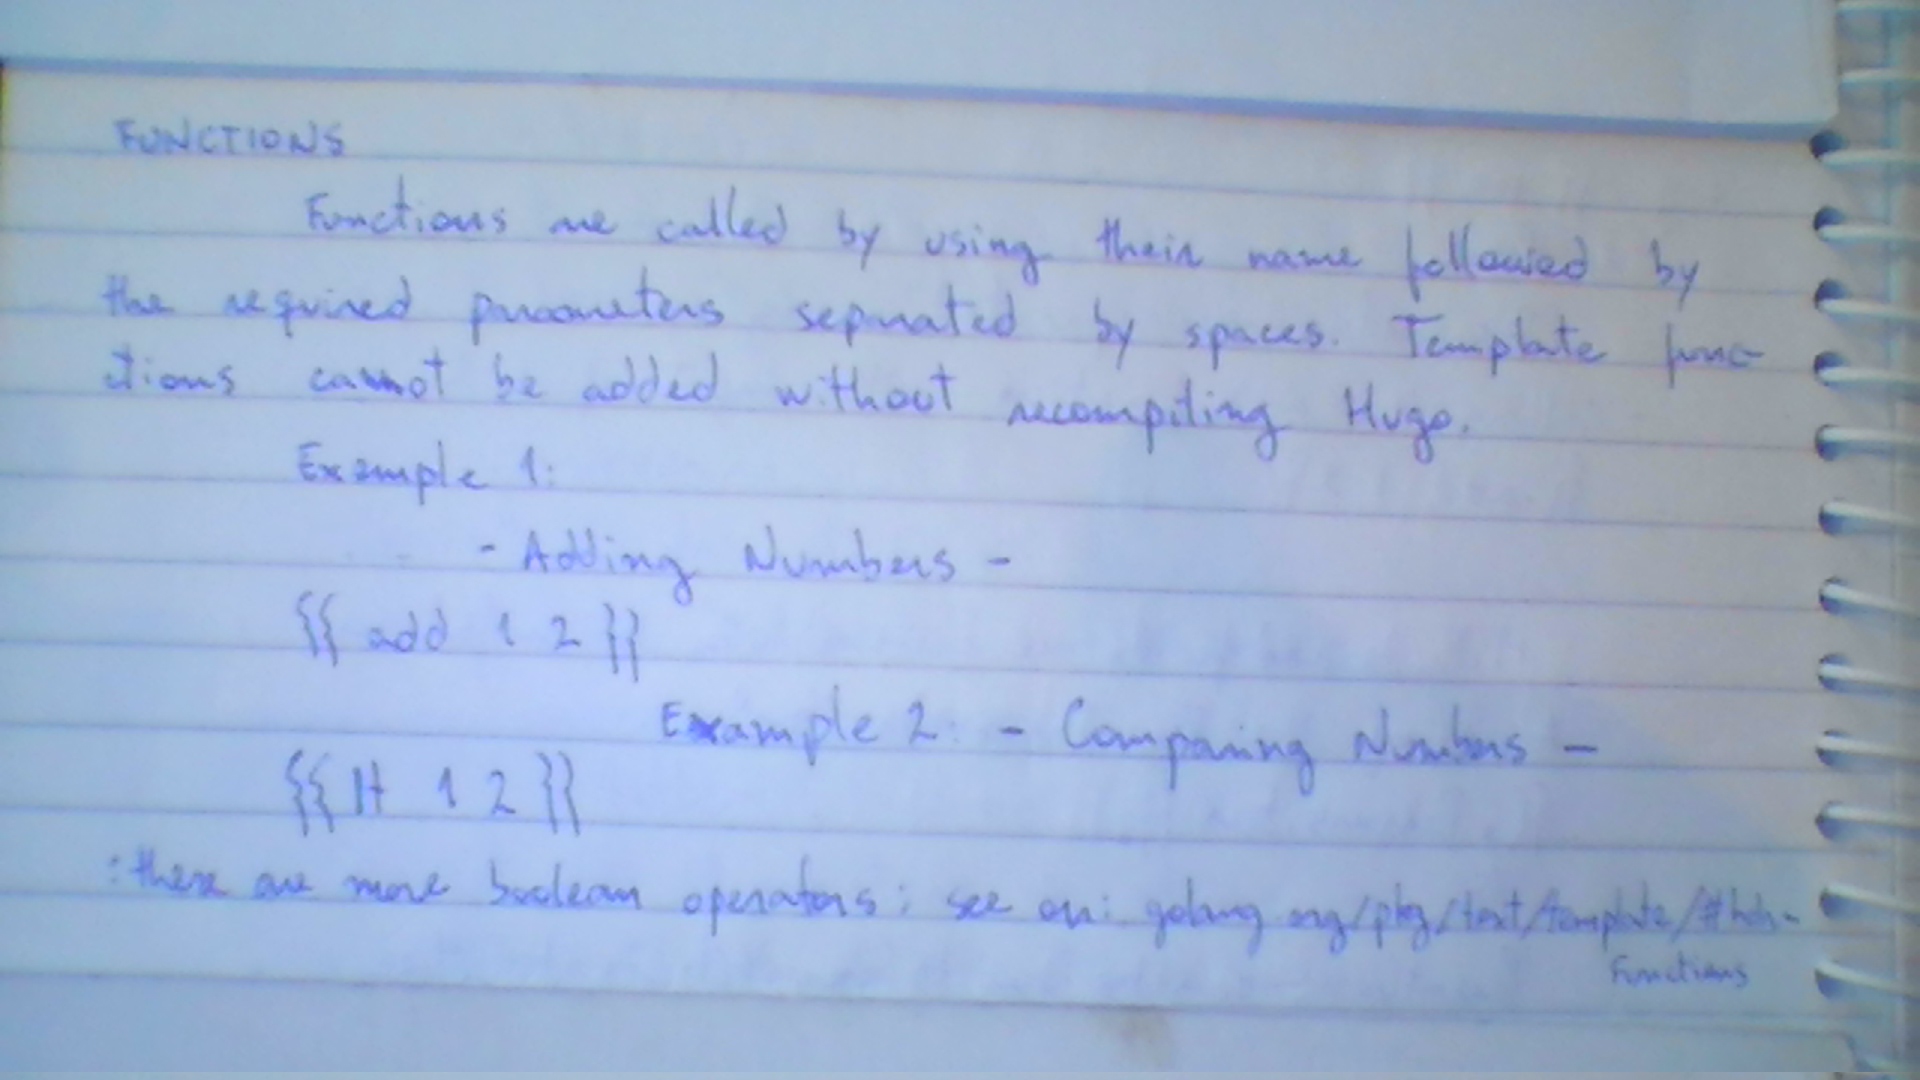 FUNCTIONS
Functions are called by using their name followed by
the required parameters separated by spaces. Template func-
tions cannot be added without recompiling Hugo.
Example 1:
- Adding Numbers -
{{ add 1 2 }}
Example 2: - Comparing Numbers -
{{ lt 1 2 }}
: there are more boolean operators; see on: golang.org/pkg/text/template/#hdr-
Functions